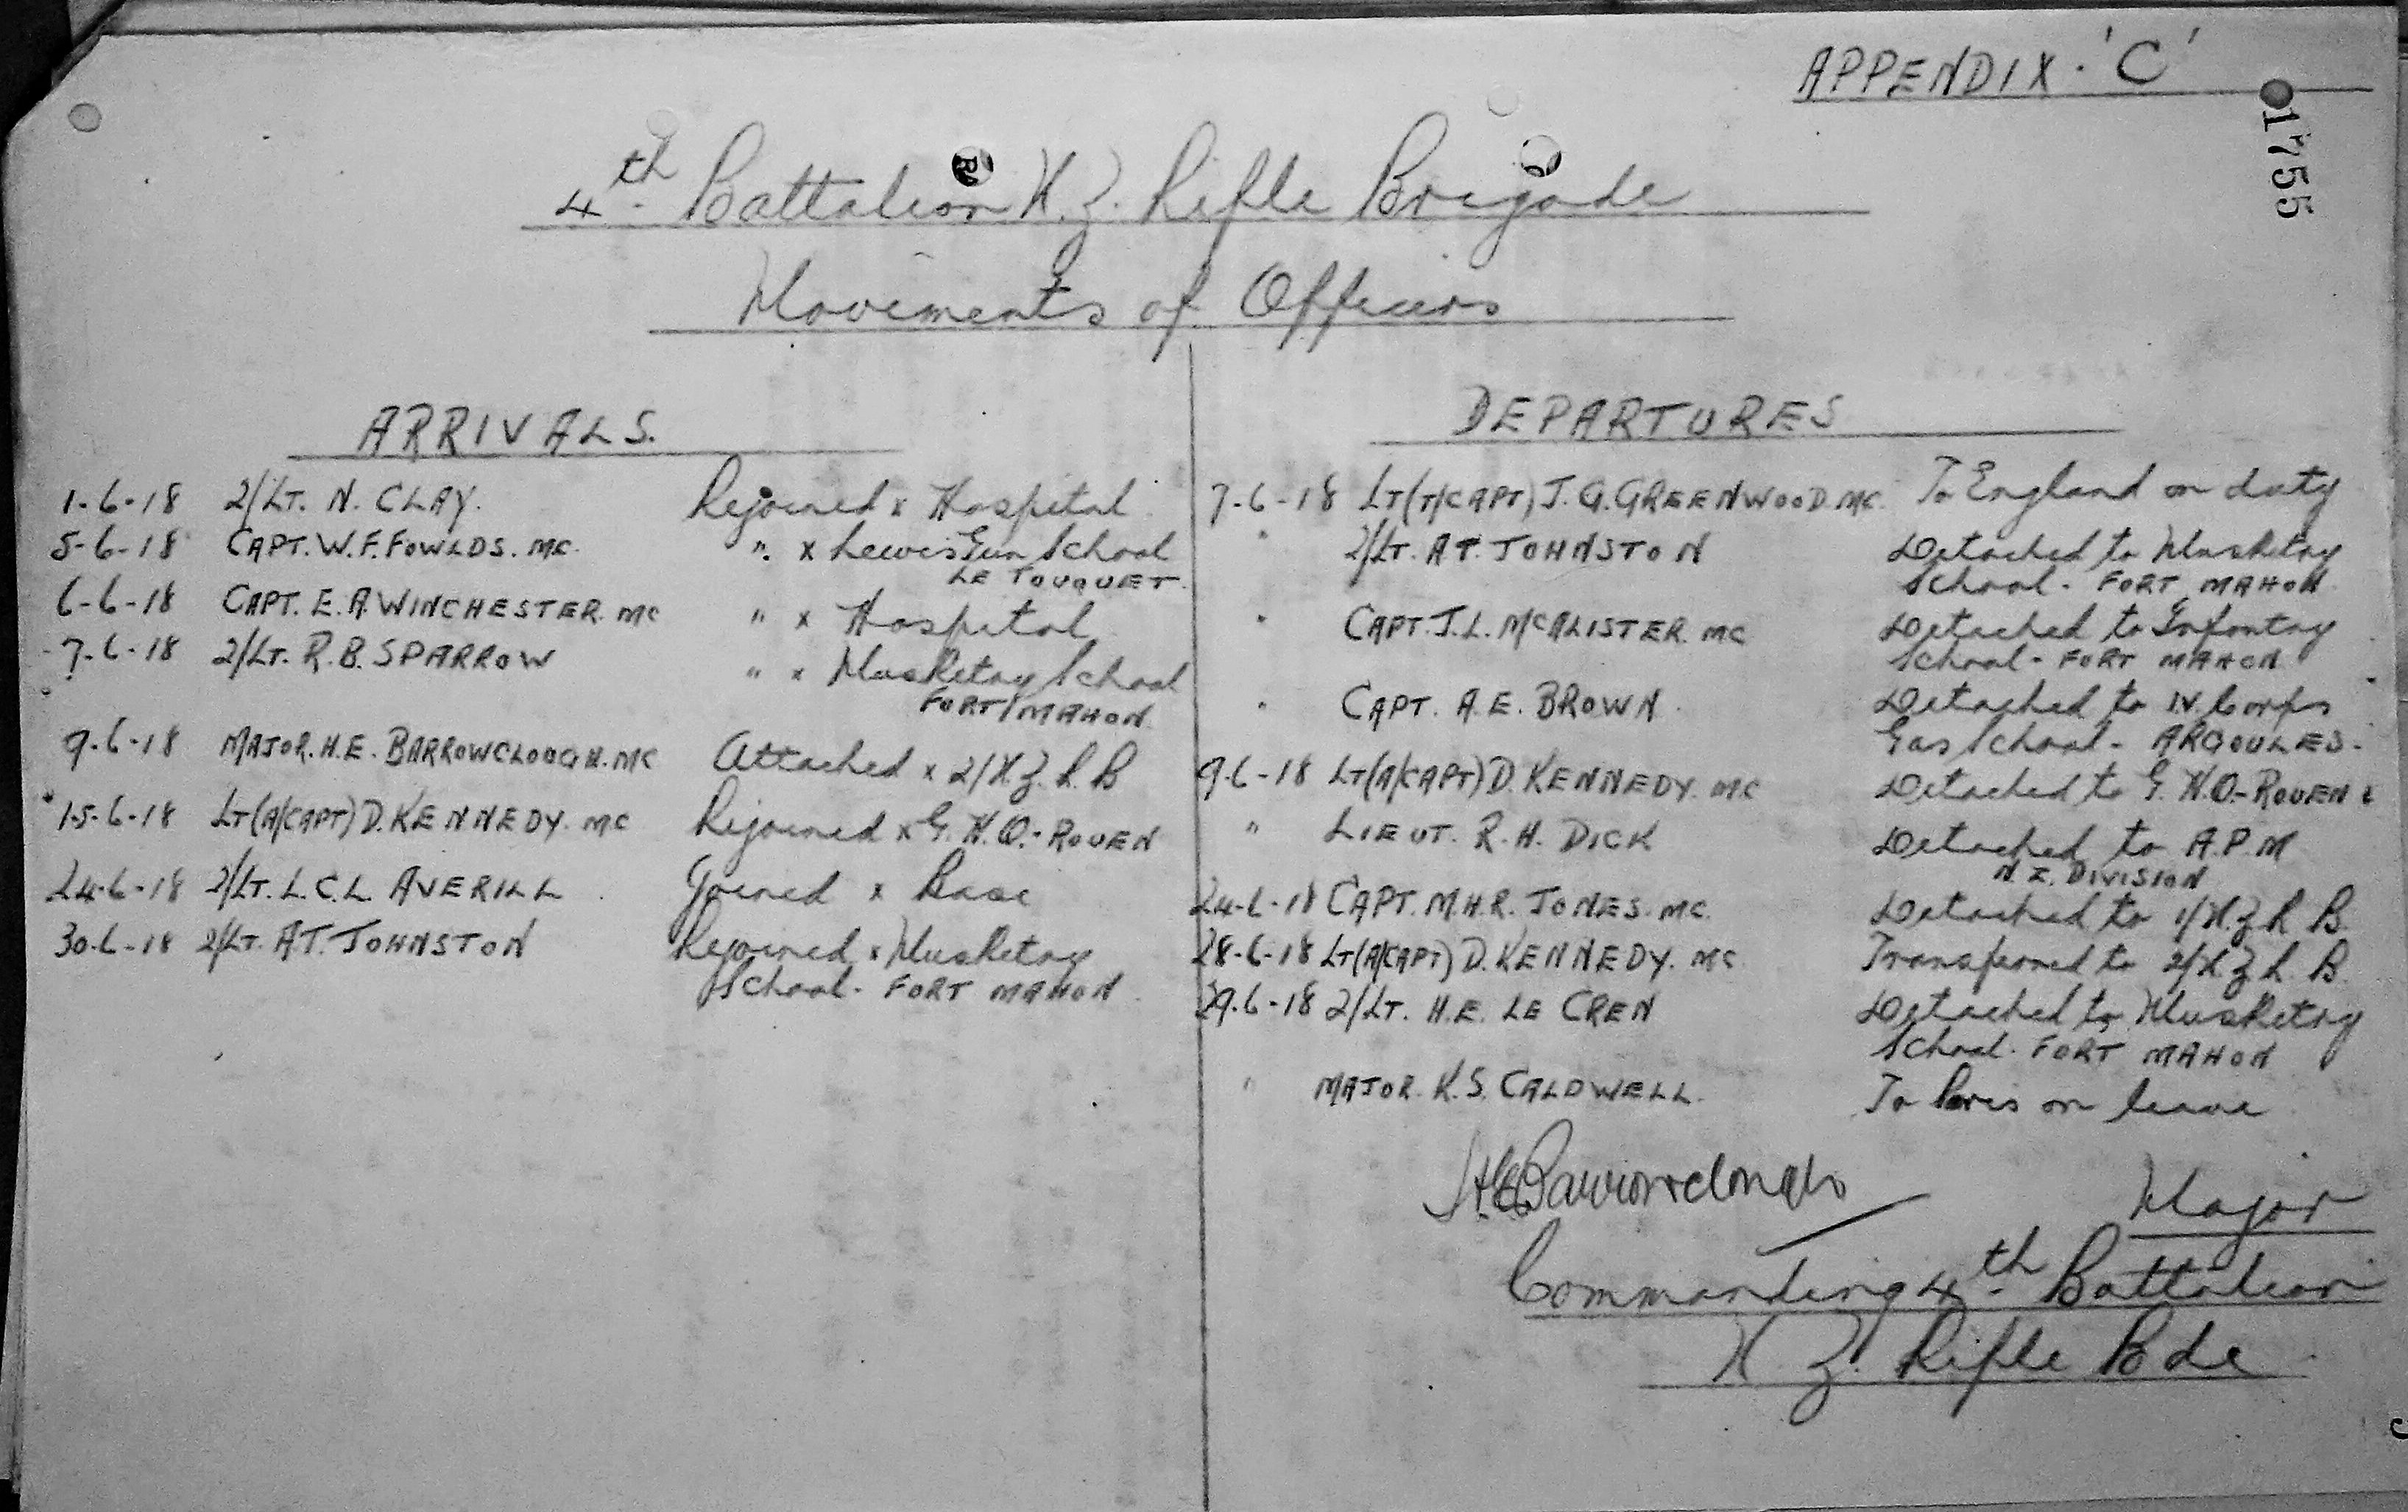 APPENDIX. 'C'
01755
4th Battalion N.Z. Rifle Brigade
Movements of Officers
ARRIVALS.
1-6-18 2/LT. N. CLAY. Rejoined x Hospital
5-6-18 CAPT. W.F. FOWLDS. MC. " x Lewis Gun School
LE TOUQUET.
6-6-18 CAPT. E. A. WINCHESTER. MC " x Hospital
7-6-18 2/LT. R.B. SPARROW " x Musketry School
FORT MAHON
9-6-18 MAJOR. H.E. BARROWCLOUGH. MC Attached x 2/N.Z.R.B
15-6-18 LT(A/CAPT) D. KENNEDY. MC Rejoined x G.H.Q.- ROUEN
24-6-18 2/LT. L.C.L. AVERILL Joined x Base
30-6-18 2/LT. A.T. JOHNSTON Rejoined x Musketry
School- FORT MAHON
DEPARTURES
7-6-18 LT(T/CAPT) J.G. GREENWOOD. MC. To England on duty
" 2/LT. A.T. JOHNSTON Detached to Musketry
School- FORT MAHON
" CAPT. J.L. McALISTER. MC Detached to Infantry
School- FORT MAHON
" CAPT. A.E. BROWN. Detached to IV. Corps
Gas School- ARGOULES-
9-6-18 LT(A/CAPT) D. KENNEDY. MC Detached to G.H.Q.- ROUEN
" LIEUT. R.H. DICK Detached to A.P.M
N.Z. DIVISION
24-6-18 CAPT. M.H.R. JONES. MC. Detached to 1/N.Z.R.B.
28-6-18 LT(A/CAPT) D. KENNEDY. MC Transferred to 2/N.Z.R.B.
29-6-18 2/LT. H.E. LE CREN Detached to Musketry
School- FORT MAHON
" MAJOR. K.S. CALDWELL. To Paris on leave
HEBarrowclough Major
Commanding 4th Battalion
N.Z. Rifle Bde